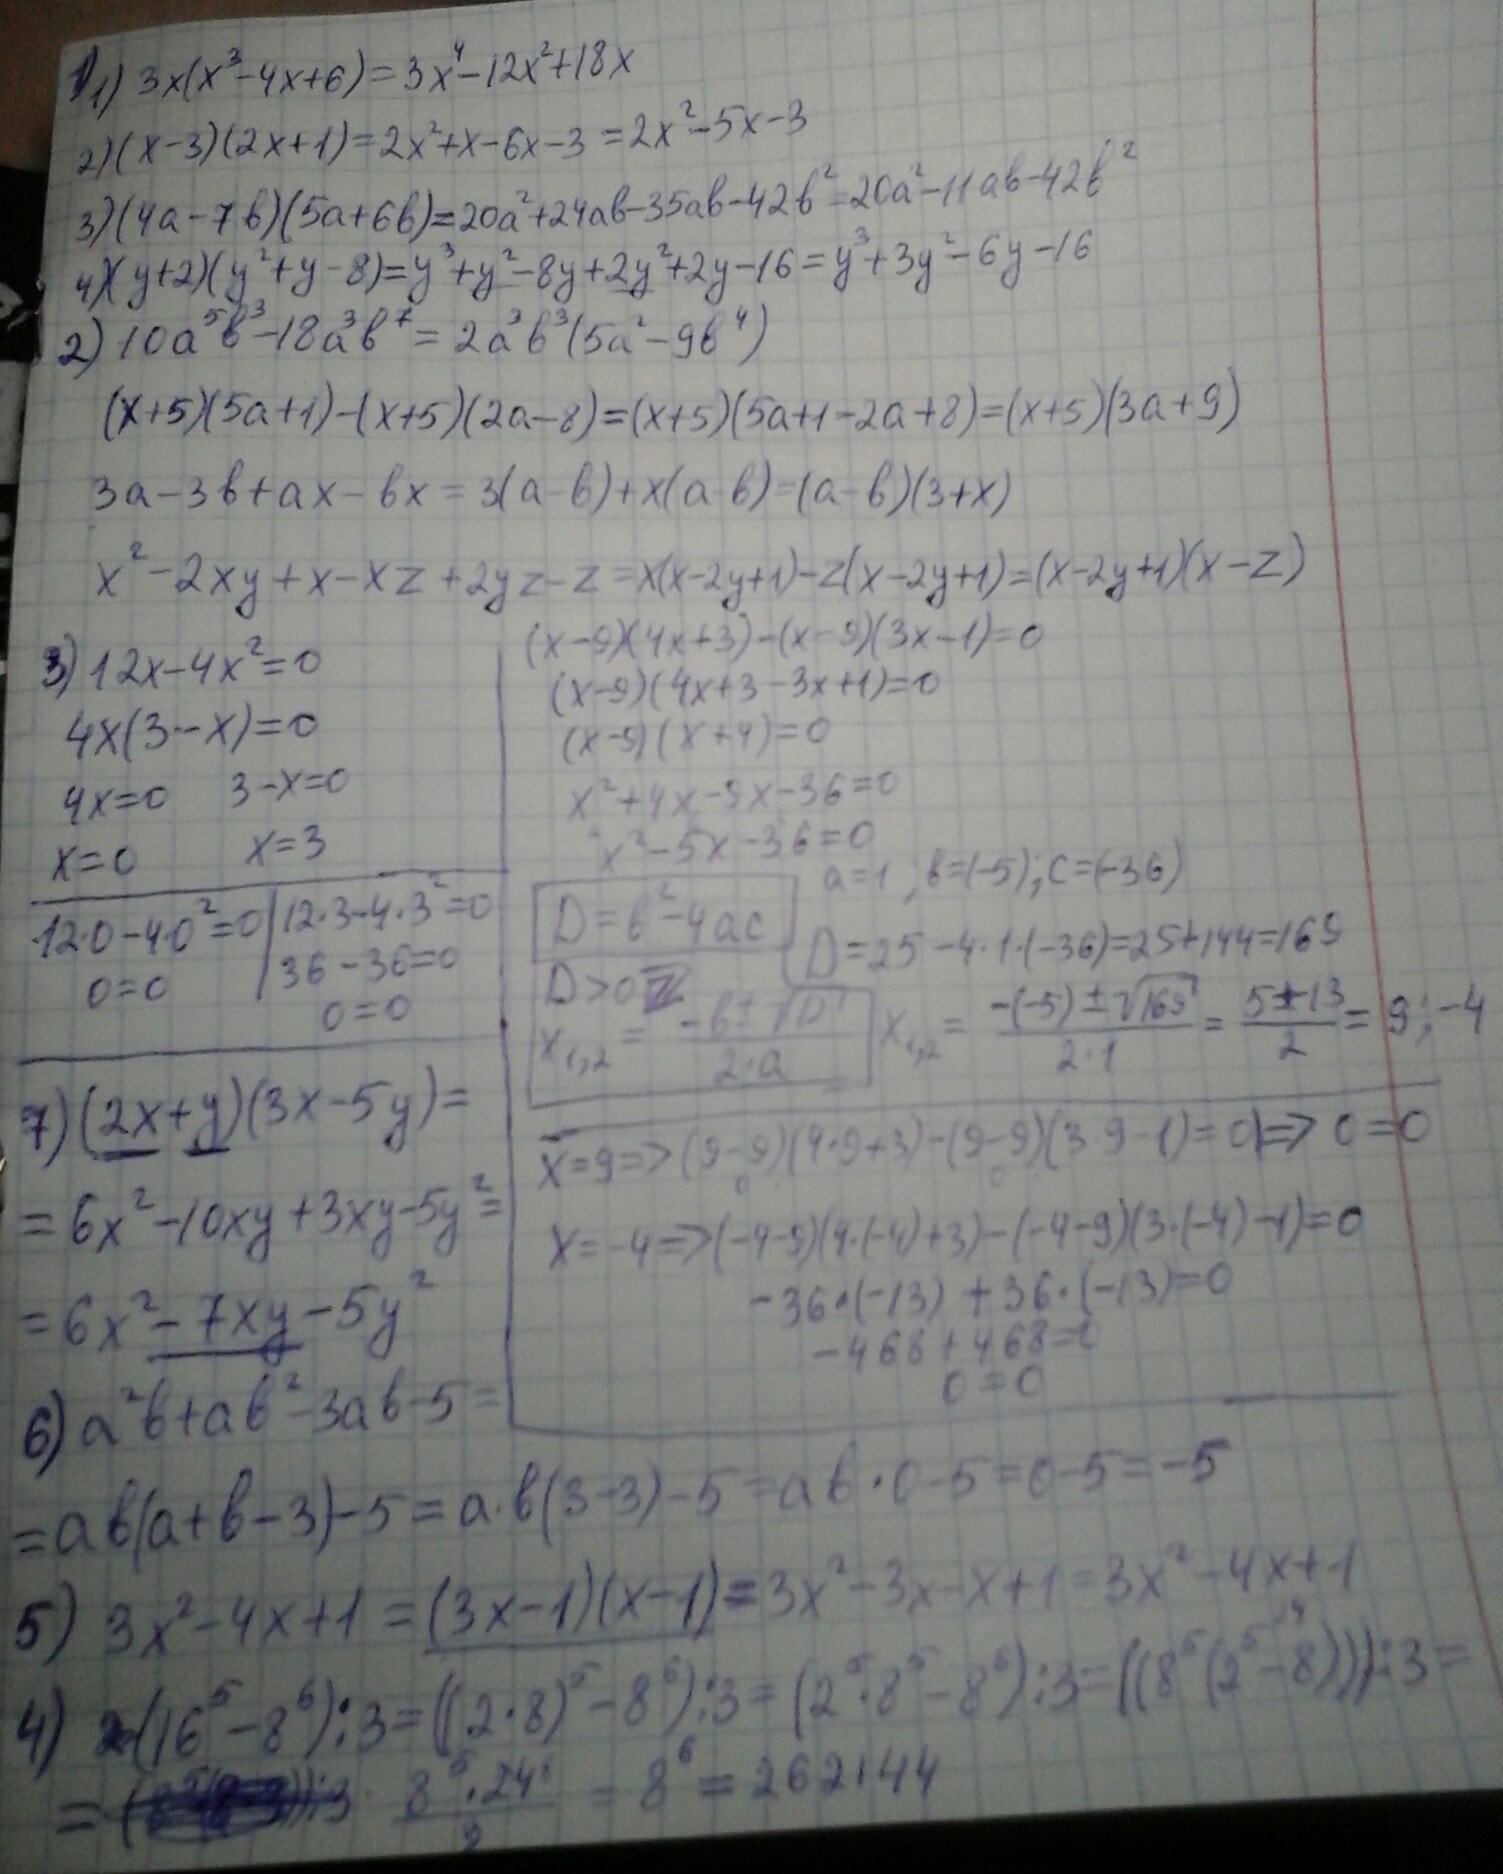 1) 1) 3x(x³-4x+6)=3x⁴-12x²+18x
2)(x-3)(2x+1)=2x²+x-6x-3=2x²-5x-3
3)(4a-7b)(5a+6b)=20a²+24ab-35ab-42b²=20a²-11ab-42b²
4)(y+2)(y²+y-8)=y³+y²-8y+2y²+2y-16=y³+3y²-6y-16
2) 10a⁵b³-18a³b⁷=2a³b³(5a²-9b⁴)
(x+5)(5a+1)-(x+5)(2a-8)=(x+5)(5a+1-2a+8)=(x+5)(3a+9)
3a-3b+ax-bx=3(a-b)+x(a-b)=(a-b)(3+x)
x²-2xy+x-xz+2yz-z=x(x-2y+1)-z(x-2y+1)=(x-2y+1)(x-z)
3) 12x-4x²=0
4x(3-x)=0
4x=0 3-x=0
x=0 x=3
12·0-4·0²=0
0=0
12·3-4·3²=0
36-36=0
0=0
(x-9)(4x+3)-(x-9)(3x-1)=0
(x-9)(4x+3-3x+1)=0
(x-9)(x+4)=0
x²+4x-9x-36=0
x²-5x-36=0
a=1; b=(-5); c=(-36)
D=b²-4ac
D=25-4·1·(-36)=25+144=169
D>0
x₁,₂ = (-b±√D)/(2·a)
x₁,₂ = (-(-5)±√169)/(2·1) = (5±13)/2 = 9; -4
x=9=>(9-9)(4·9+3)-(9-9)(3·9-1)=0=>0=0
0 0
x=-4=>(-4-9)(4·(-4)+3)-(-4-9)(3·(-4)-1)=0
-36·(-13)+36·(-13)=0
-468+468=0
0=0
7)(2x+y)(3x-5y)=
=6x²-10xy+3xy-5y²=
=6x²-7xy-5y²
6) a²b+ab²-3ab-5=
=ab(a+b-3)-5=a·b(3-3)-5=ab·0-5=0-5=-5
5) 3x²-4x+1=(3x-1)(x-1)=3x²-3x-x+1=3x²-4x+1
4) (16⁵-8⁶):3=((2·8)⁵-8⁶):3=(2⁵·8⁵-8⁶):3=((8⁵(2⁵-8))):3=
= 8⁵·24/3 = 8⁶=262144